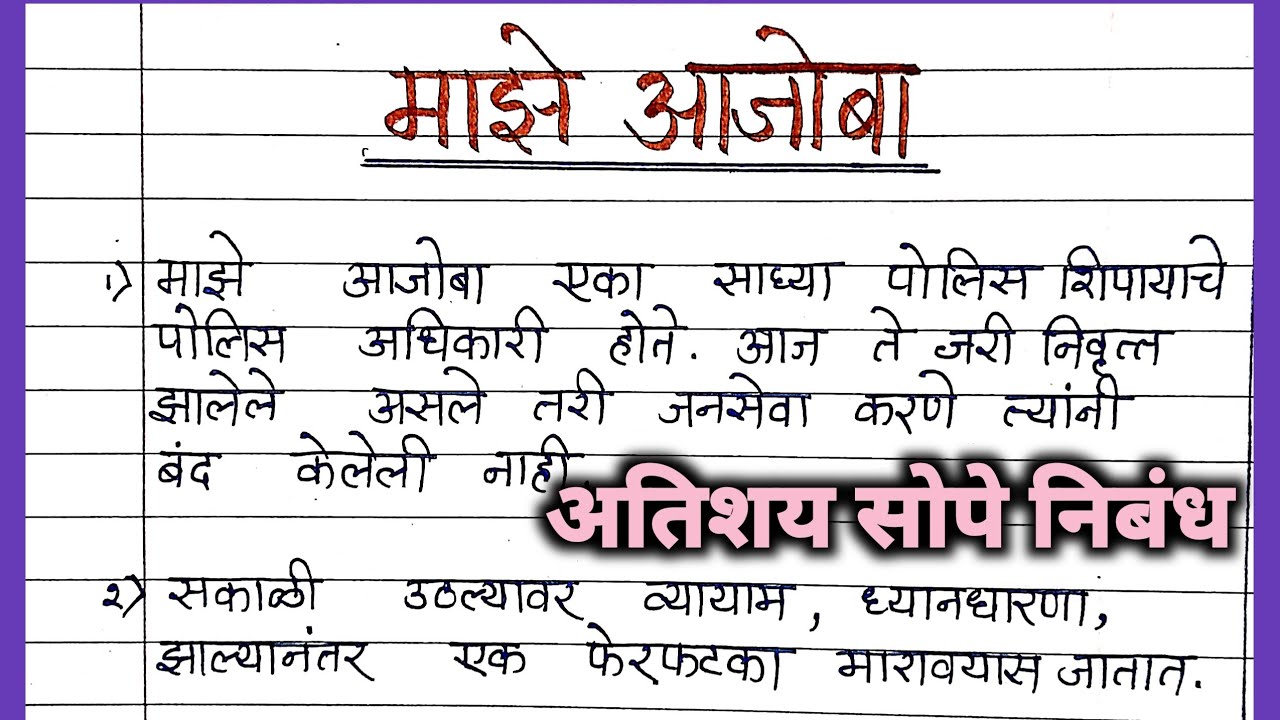 माझे आजोबा
१) माझे आजोबा एका साध्या पोलिस शिपायाचे
पोलिस अधिकारी होते. आज ते जरी निवृत्त
झालेले असले तरी जनसेवा करणे त्यांनी
बंद केलेली नाही.
अतिशय सोपे निबंध
२) सकाळी उठल्यावर व्यायाम, ध्यानधारणा,
झाल्यानंतर एक फेरफटका मारावयास जातात.